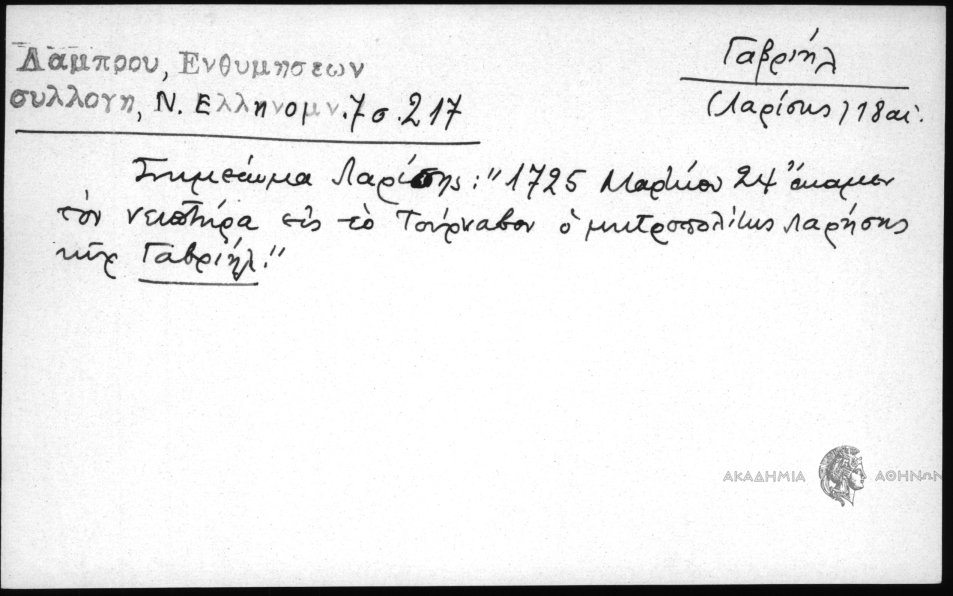 Λάμπρου, Ενθυμησεων
συλλογη, Ν. Ελληνομν. 7 σ. 217
Γαβριήλ
(Λαρίσης) 18 αἰ.
Σημείωμα Λαρίσης: "1725 Μαρτίου 24 ἔκαμεν
τὸν νιπτῆρα εἰς τὸ Τούρναβον ὁ μητροπολίτης Λαρήσης
κὺρ Γαβριήλ."
ΑΚΑΔΗΜΙΑ ΑΘΗΝΩΝ